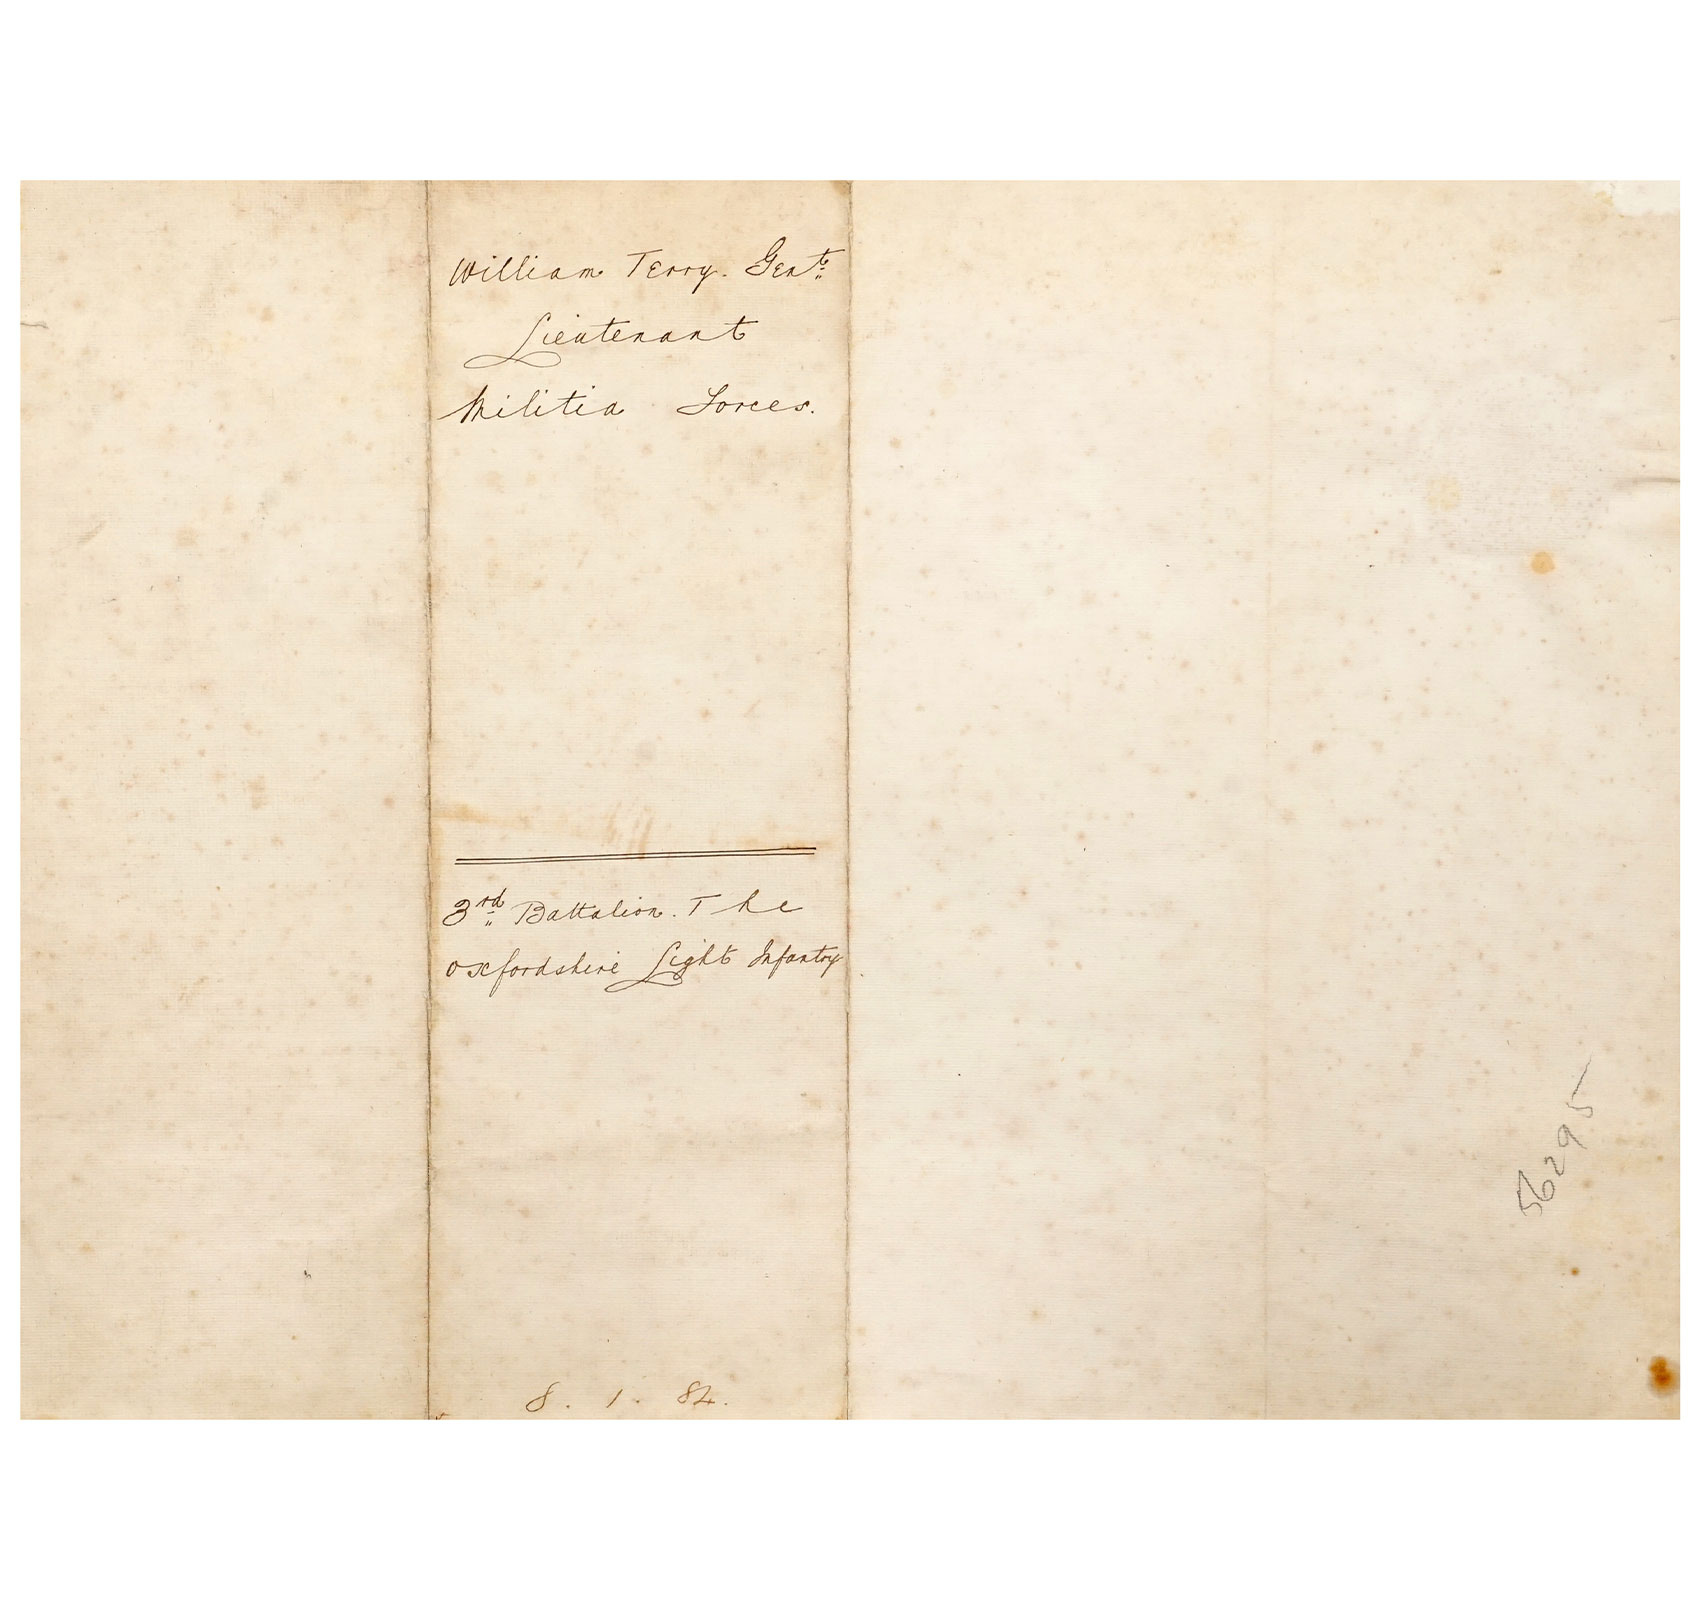 William Terry. Gent:
Lieutenant
Militia Forces.
3rd Battalion. The
Oxfordshire Light Infantry
8. 1. 84.
56295